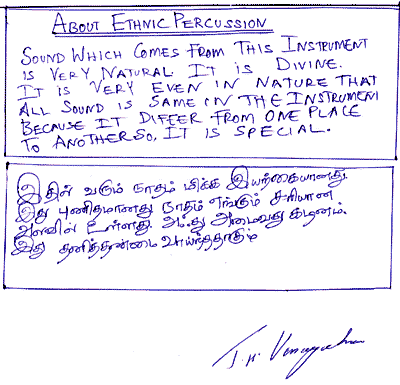 ABOUT ETHNIC PERCUSSION
SOUND WHICH COMES FROM THIS INSTRUMENT
IS VERY NATURAL IT IS DIVINE.
IT IS VERY EVEN IN NATURE THAT
ALL SOUND IS SAME IN THE INSTRUMENT
BECAUSE IT DIFFER FROM ONE PLACE
TO ANOTHER SO, IT IS SPECIAL.
இதில் வரும் நாதம் மிக்க இயற்கையானது.
இது புனிதமானது நாதம் எங்கும் சரியான
அளவில் உள்ளது. அமைவது கடினம்.
இது தனித்தன்மை வாய்ந்ததாகும்
T.H.